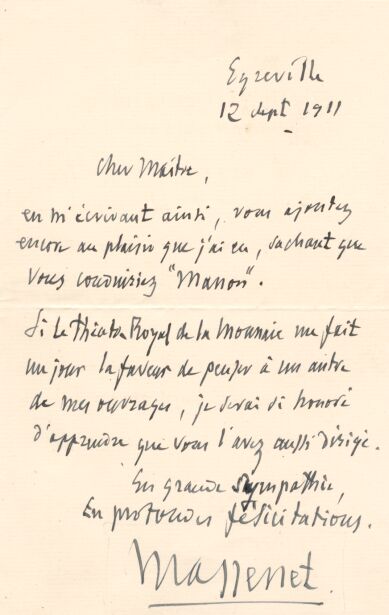 Egreville
12 sept 1911
Cher Maître,
en m'écrivant ainsi, vous ajoutez
encore au plaisir que j'ai eu, sachant que
vous conduisiez "Manon".
Si le Théâtre Royal de la Monnaie me fait
un jour la faveur de penser à un autre
de mes ouvrages, je serai si honoré
d'apprendre que vous l'avez aussi dirigé.
En grande sympathie,
En profondes félicitations.
Massenet.